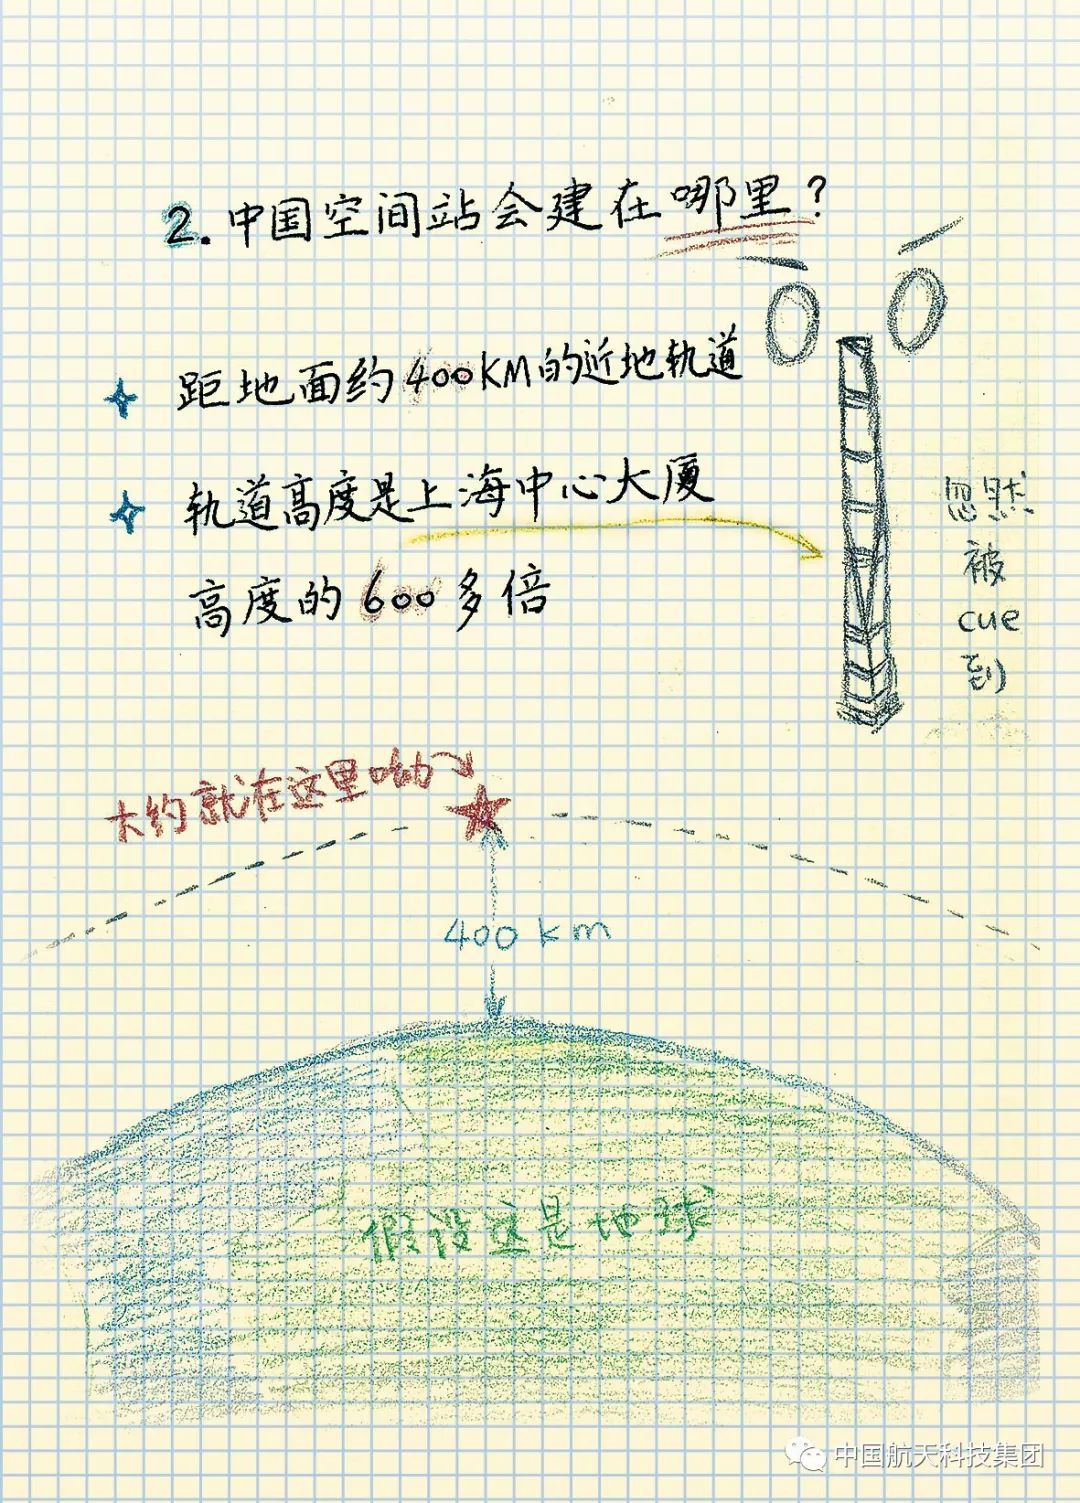 2.中国空间站会建在哪里？
距地面约400KM的近地轨道
轨道高度是上海中心大厦
高度的600多倍
忽然
被
cue
到
大约就在这里呦
400km
假设这是地球
中国航天科技集团